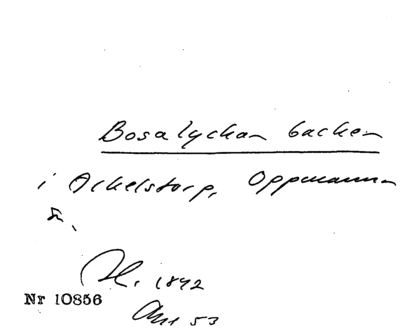 Bosalyckan backen
i Arkelstorp, Oppmanna
sn.
H. 1842
Nr 10856
53